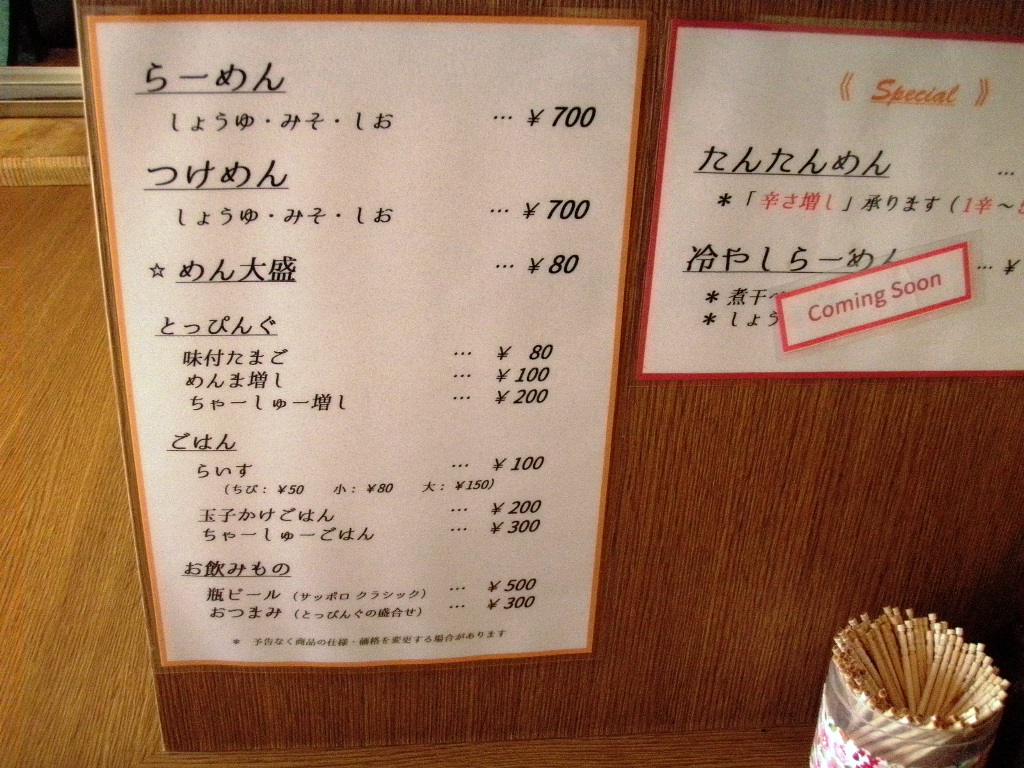 らーめん
しょうゆ・みそ・しお … ¥700
つけめん
しょうゆ・みそ・しお … ¥700
☆ めん大盛 … ¥80
とっぴんぐ
味付たまご … ¥ 80
めんま増し … ¥100
ちゃーしゅー増し … ¥200
ごはん
らいす … ¥100
（ちび：¥50 小：¥80 大：¥150）
玉子かけごはん … ¥200
ちゃーしゅーごはん … ¥300
お飲みもの
瓶ビール（サッポロ クラシック） … ¥500
おつまみ（とっぴんぐの盛合せ） … ¥300
＊ 予告なく商品の仕様・価格を変更する場合があります
《 Special 》
たんたんめん …
＊「辛さ増し」承ります（1辛～5
冷やしらーめん … ¥
＊ 煮干
＊ しょう
Coming Soon